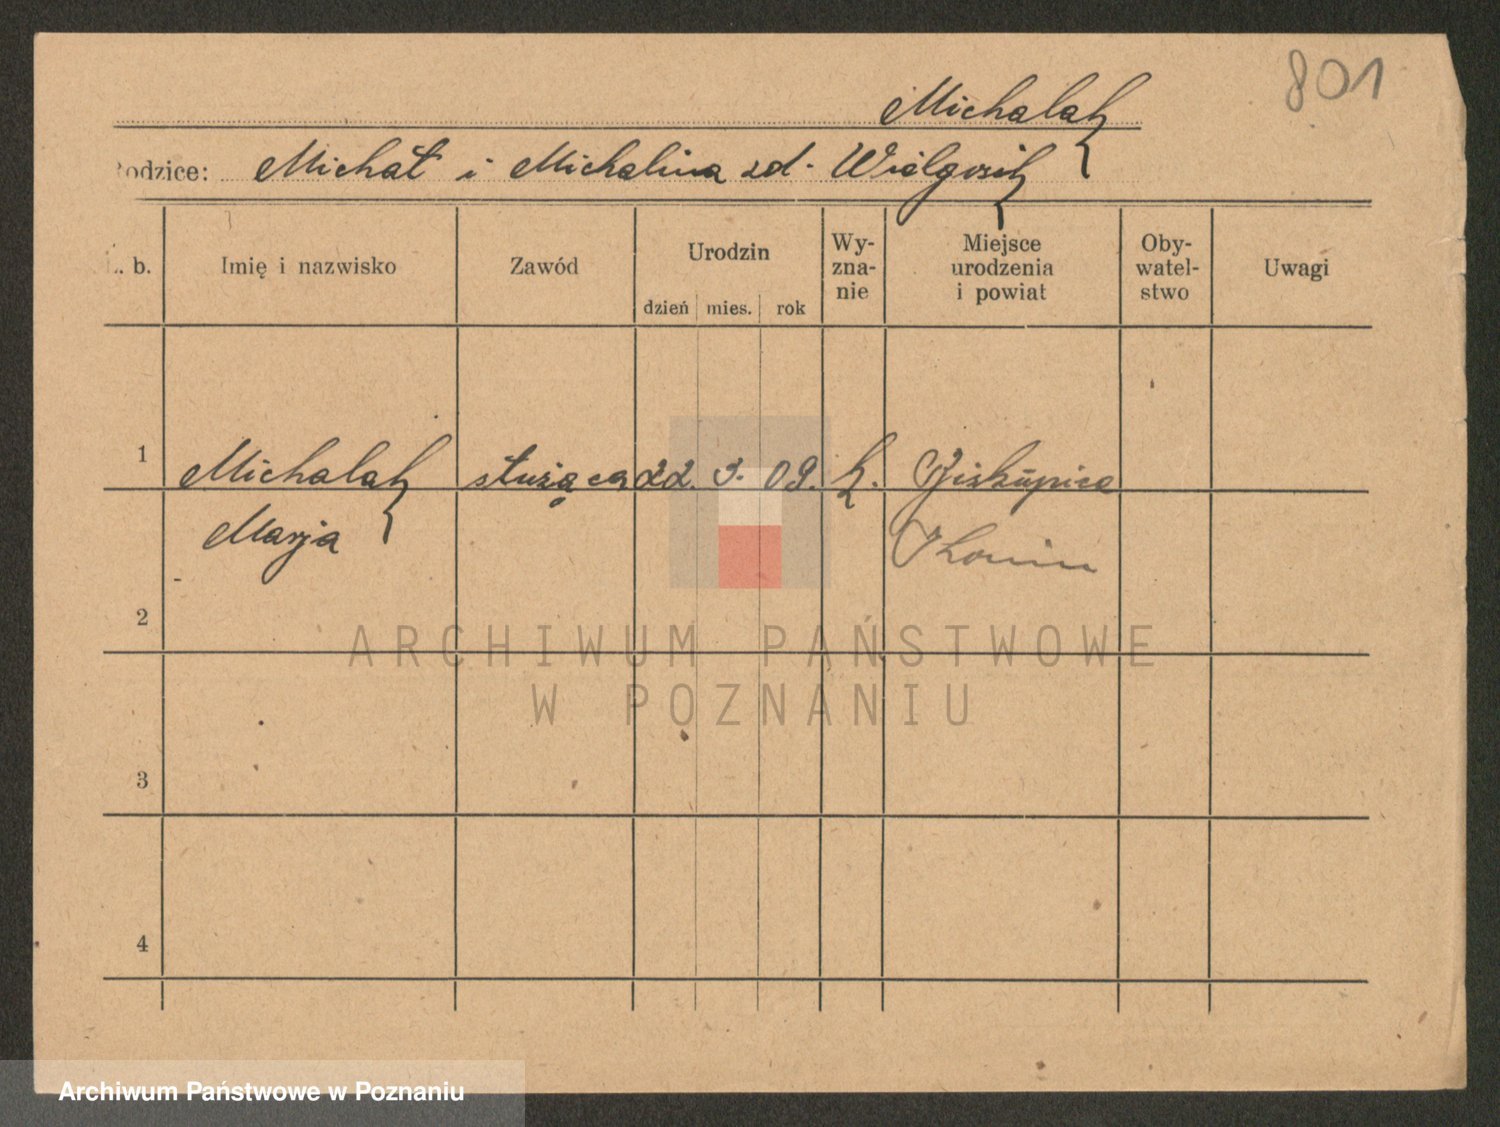 801
Michalak
Rodzice: Michał i Michalina zd. Wielgosik
L. b. Imię i nazwisko Zawód Urodzin dzień mies. rok Wy-zna-nie Miejsce urodzenia i powiat Oby-watel-stwo Uwagi
1 Michalak służąca 22. 3. 09. k. Biskupice
Marja Konin
2
3
4
ARCHIWUM PAŃSTWOWE
W POZNANIU
Archiwum Państwowe w Poznaniu